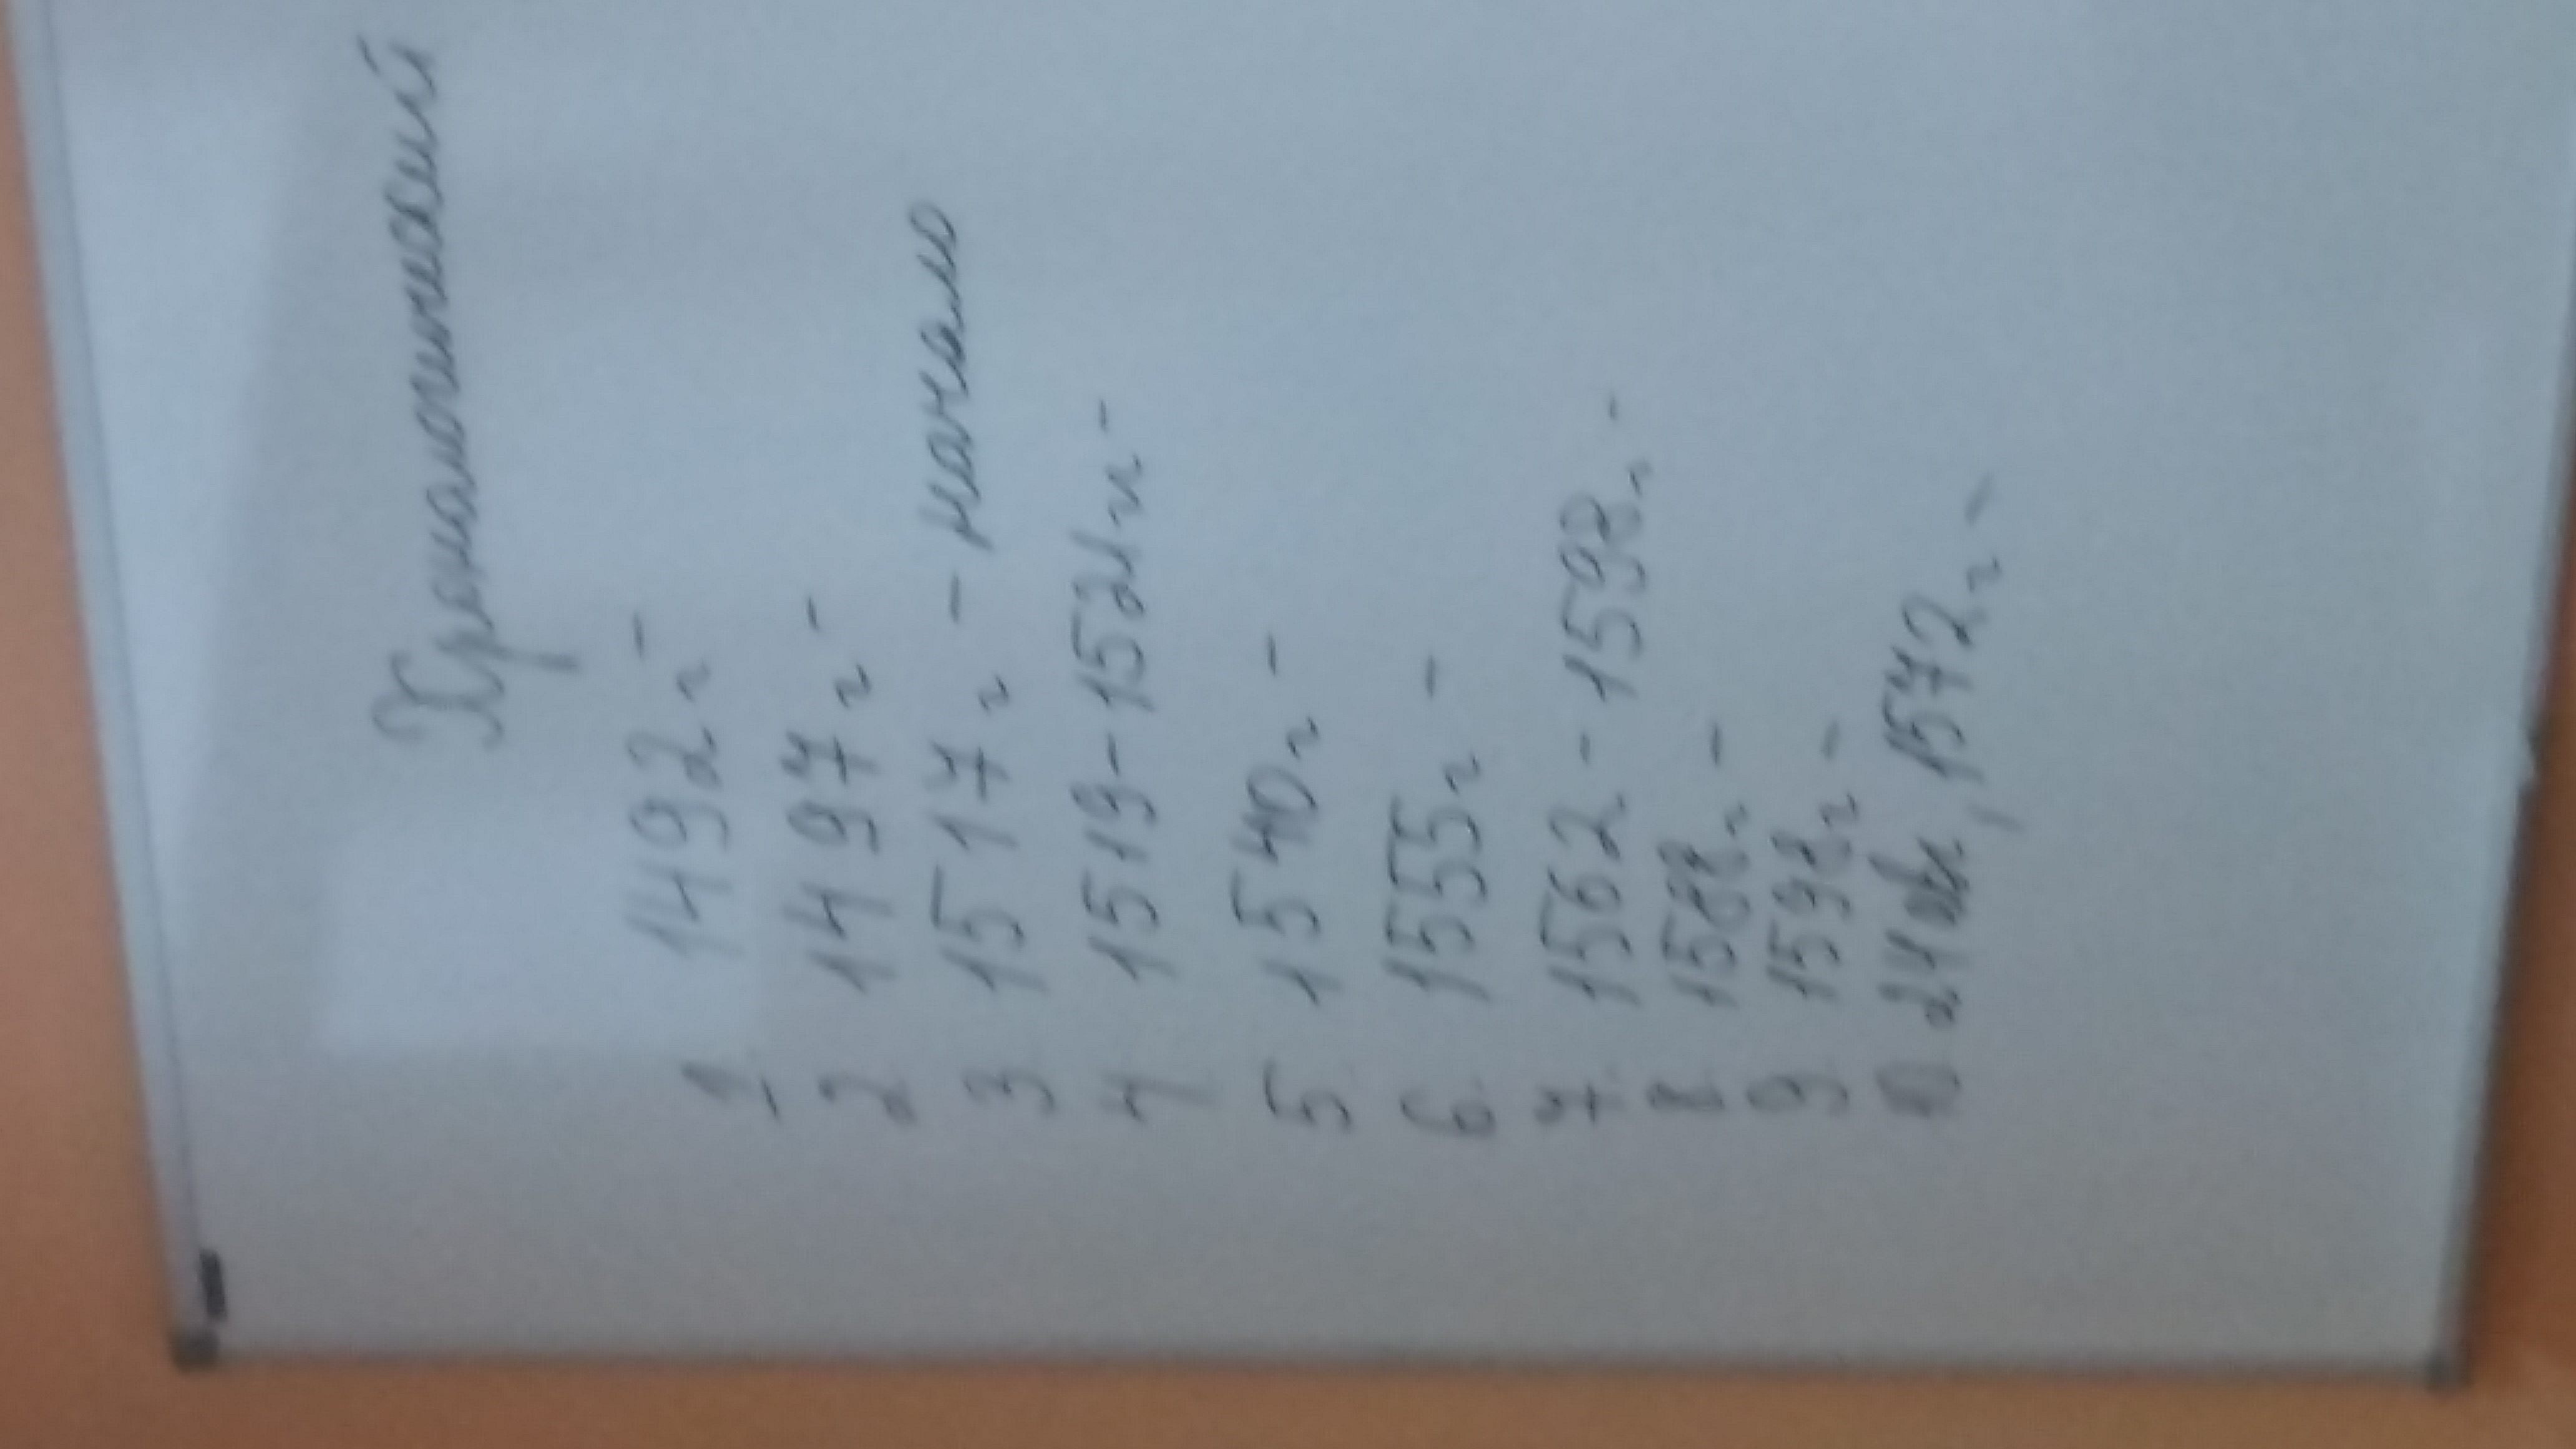 Хронологический
1 1492г. -
2 1497г. -
3 1517г. - начало
4 1519-1521гг -
5 1540г. -
6. 1555г. -
7. 1562 - 1598г. -
8 1588г. -
9 1598г. -
10 24 авг, 1572г. -